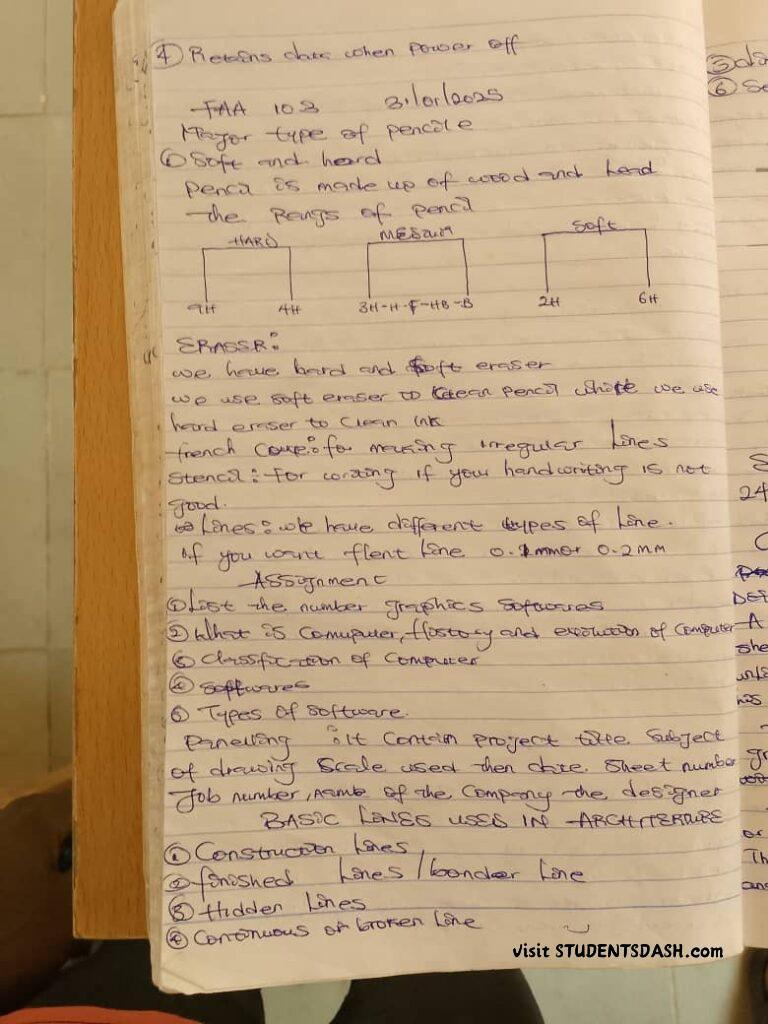 ④ Retains data when power off
FAA 103 31/01/2025
Major type of pencile
① Soft and heard
Pencil is made up of wood and lead
the Rangs of pencil
HARD MEDIUM Soft
9H 4H 3H-H-F-HB-B 2H 6H
ERASSR:
we have hard and soft eraser
we use soft eraser to clean pencil while we use
hard eraser to clean ink
french : for irregular lines
Stencil: for writing if your handwriting is not
good.
Lines: we have different types of line.
if you want line 0.1mm or 0.2mm
Assignment
① List the number graphics softwares
② What is Comuputer, History and of Computer
③ Classification of Computer
④ Softwares
⑤ Types of software.
Panelling : it contain project title. Subject
of drawing Scale used then date. Sheet number
Job number, name of the Company the designer
BASIC LINES USES IN
① Construction Lines
② finished Lines / border Line
③ Hidden Lines
④ Continuous or broken Line
visit STUDENTSDASH.com
③
⑥
24
A